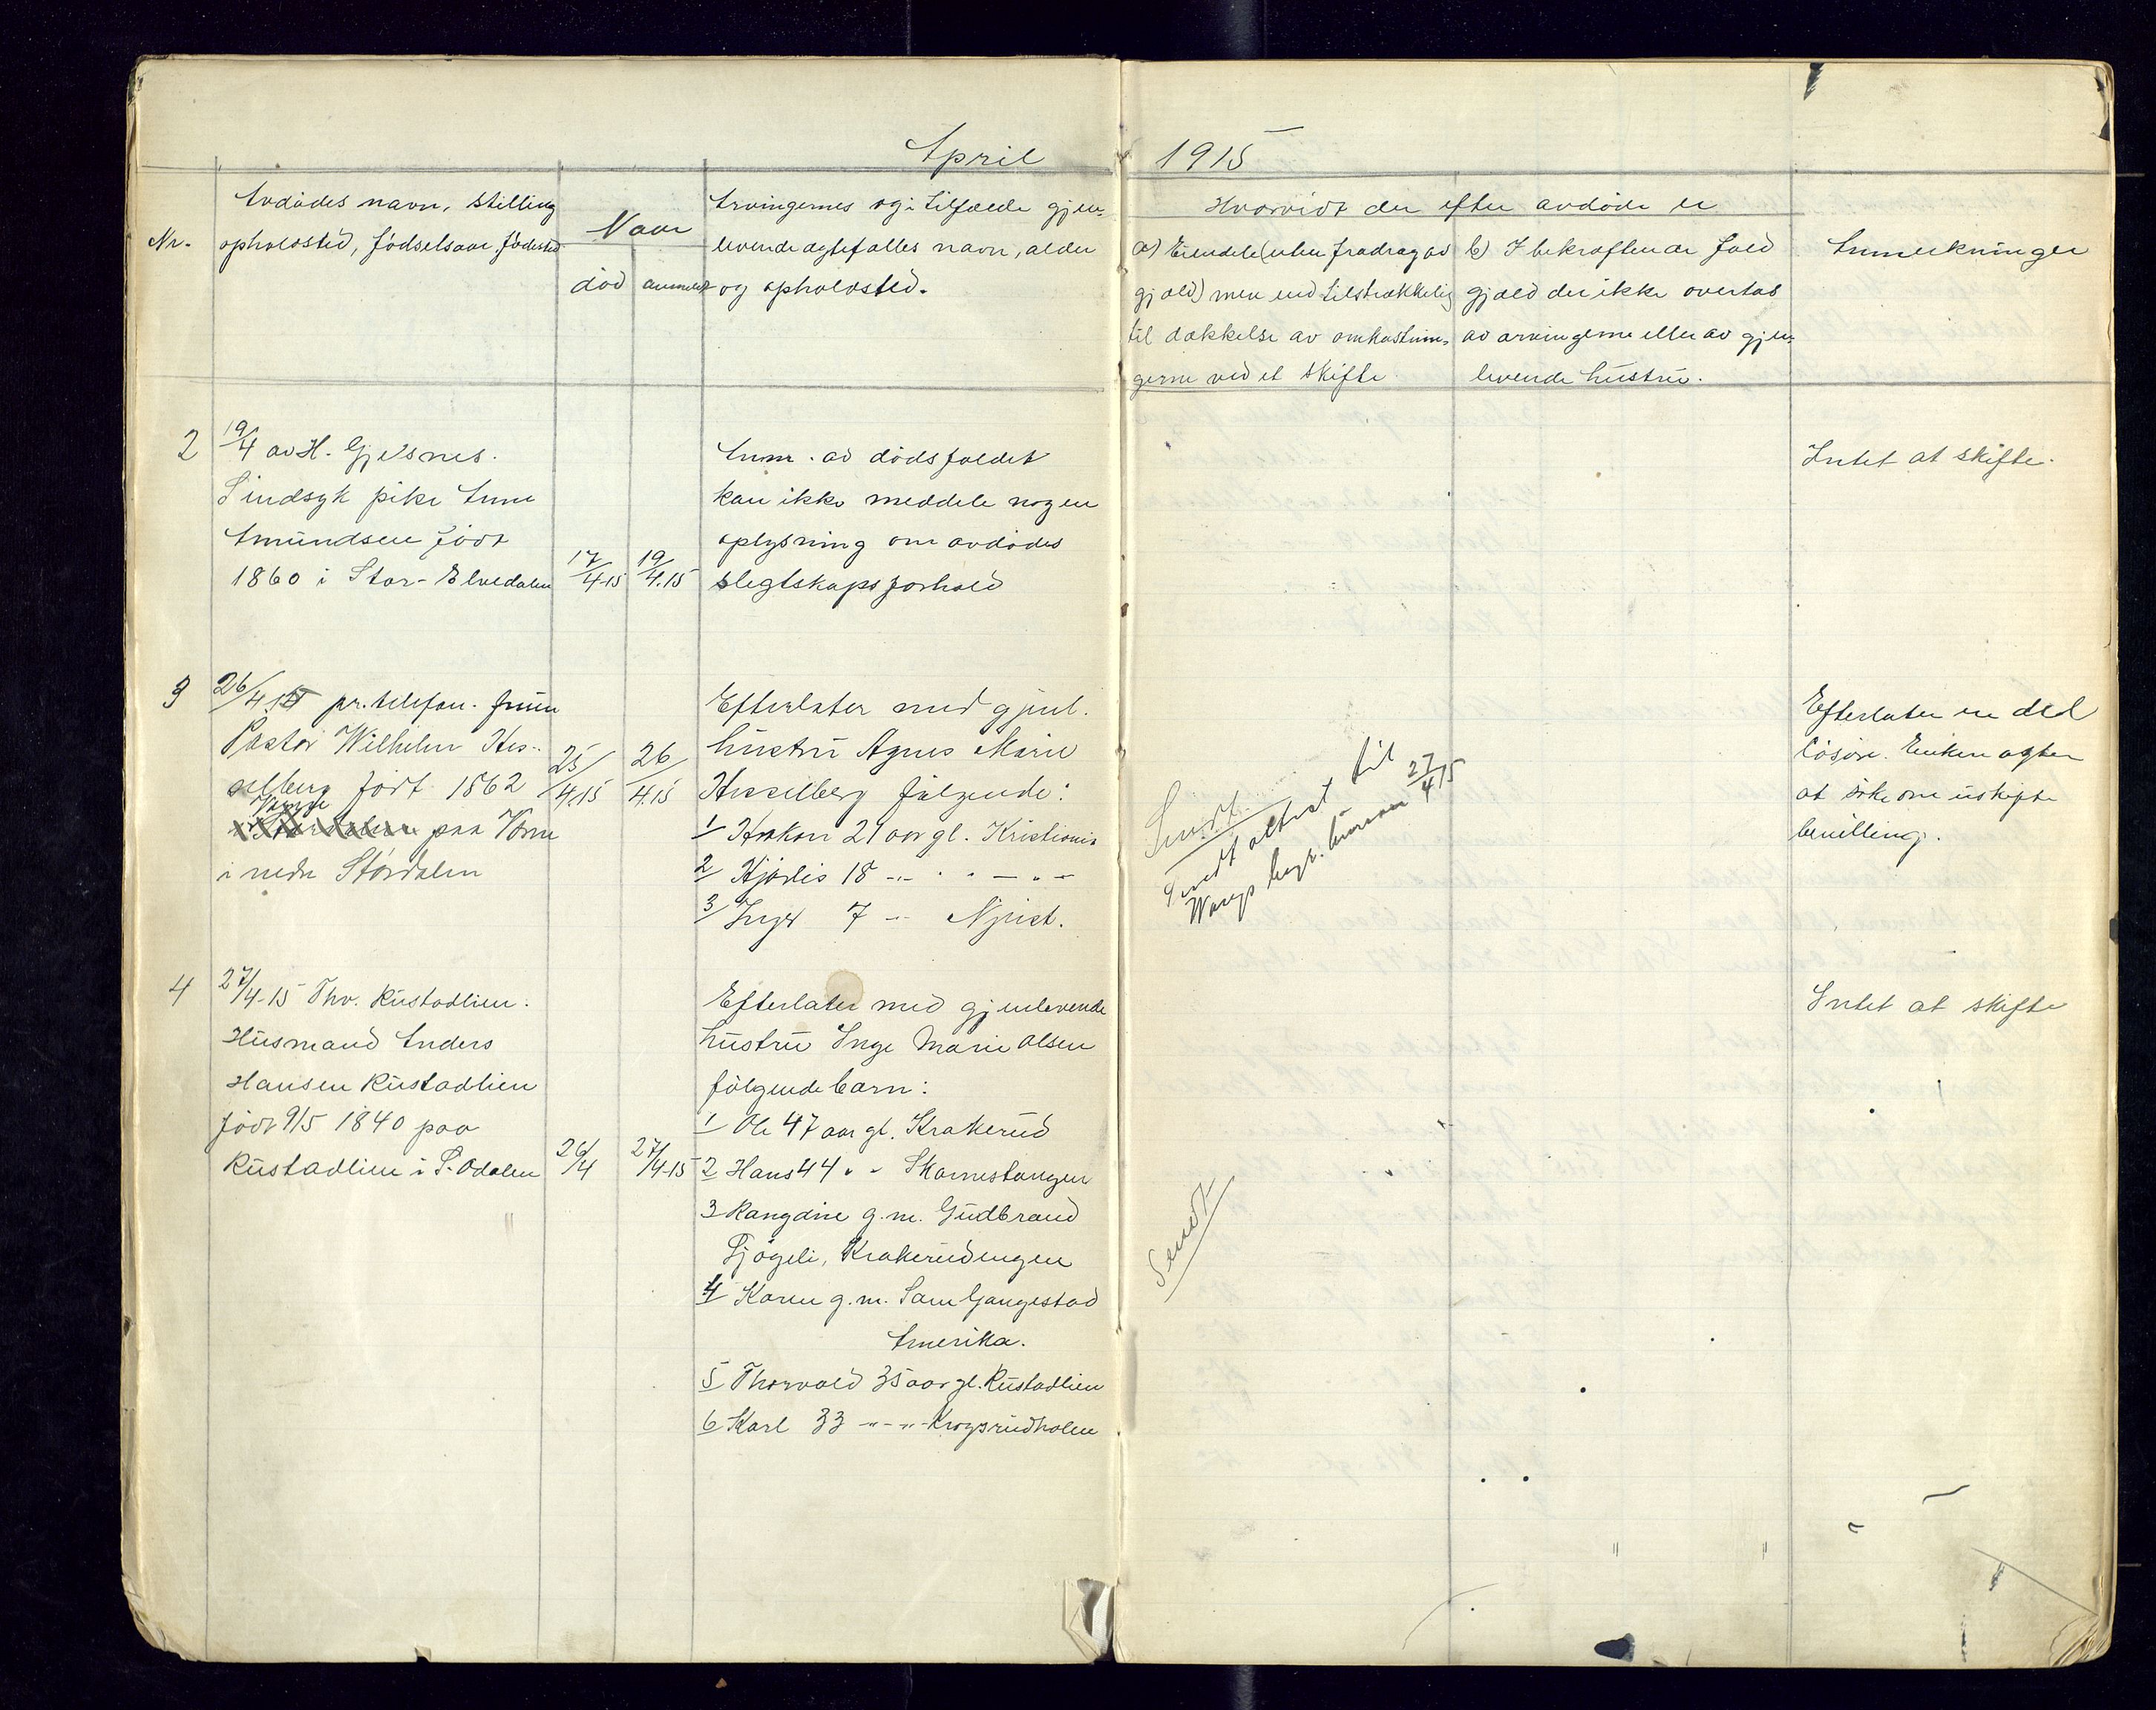 April 1915
Nr.
Avdødes navn, stilling
opholdsted, fødselsaar, fødested
Naar
død
anmeldt
Arvingernes og i tilfælde gjen-
levende ægtefælles navn, alder
og opholdsted.
Hvorvidt der efter avdøde er
a) Eiendele (uten fradrag av
gjæld) mere end tilstrækkelig
til dækkelse av omkostnin-
gerne ved et skifte
b) I bekræftende fald
gjæld der ikke overtas
av arvingerne eller av gjen-
levende hustru.
Anmerkninger
2
19/4 av H. Gjelsnes.
Sindsyk pike Anne
Amundsen født
1860 i Stor-Elvedalen
17/4-15
19/4.15
Anm. av dødsfaldet
kan ikke meddele nogen
oplysning om avdødes
slegtskapsforhold
Intet at skifte.
3
26/4 15 pr. telefon. fruen
Pastor Wilhelm Hes-
selberg født 1862
paa Værne
i nedre Stördalen
25/4.15
26/4.15
Efterlater med gjenl.
hustru Agnes Marie
Hesselberg følgende:
1 Haakon 21 aar gl. Kristiania
2 Hjørdis 18 -"- " - " -
3 Inger 7 -"-
Sendt
Sendt attest til
Wangs begr. bureau 27/4 15
Efterlater en del
løsøre. Enken agter
at søke om uskifte
bevilling.
4
27/4-15 Thv. Rustadlien.
Husmand Anders
Hansen Rustadlien
født 9/5 1840 paa
Rustadlien i S. Odalen
26/4
27/4-15
Efterlater med gjenlevende
hustru Inge Marie Olsen
følgende barn:
1 Ole 47 aar gl. Krakerud
2 Hans 44 " " Skarnestangen
3 Rangdine g.m. Gudbrand
Sjøgeli, Krakerudengen
4 Karen g.m. Sam Gangestad
Amerika.
5 Thorvald 35 aar gl. Rustadlien
6 Karl 33 -"-"- Krogsrudholen
Sendt
Intet at skifte